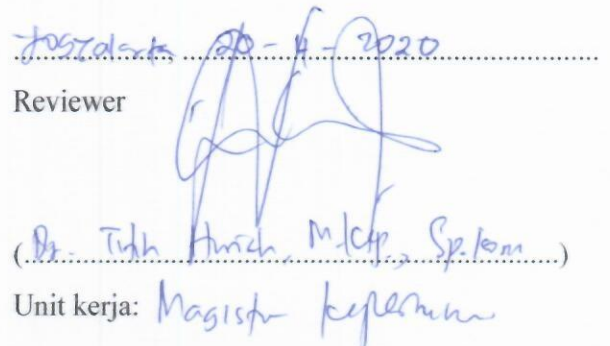 Yogyakarta, 20-4-2020
Reviewer
(Dr. Titih M.Kep., Sp.Kom)
Unit kerja: Magister Keperawatan